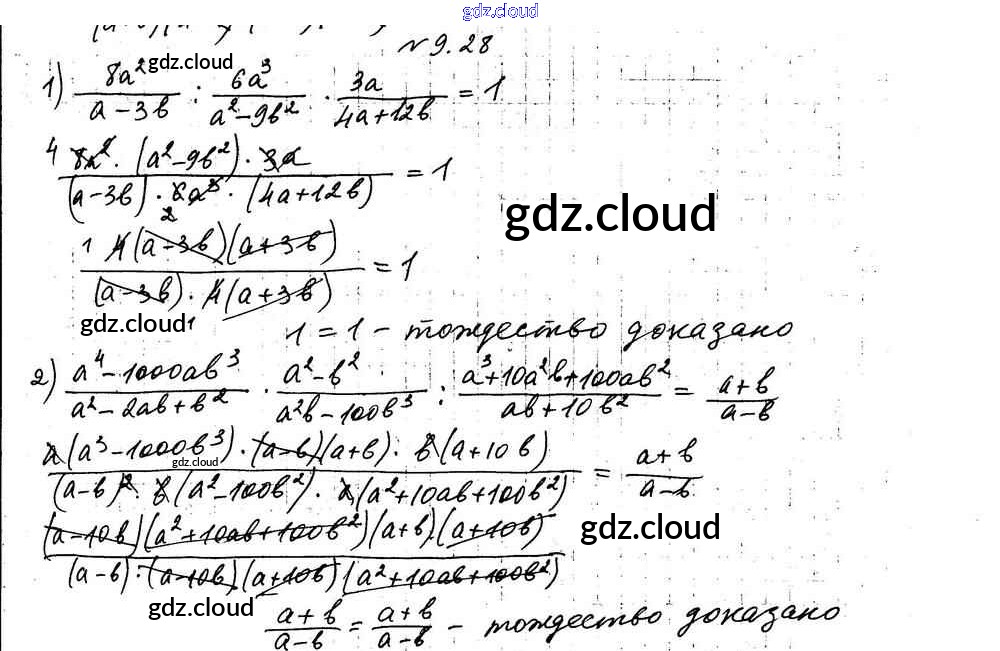 gdz.cloud
№ 9.28
gdz.cloud
1) 8a²/(a-3b) : 6a³/(a²-9b²) · 3a/(4a+12b) = 1
4 8a² · (a²-9b²) · 3a / (a-3b) · 6a³ · (4a+12b) = 1
2
gdz.cloud
1 4(a-3b)(a+3b) / (a-3b) · 4(a+3b) = 1
gdz.cloud 1
1 = 1 - тождество доказано
2) (a⁴-1000ab³)/(a²-2ab+b²) · (a²-b²)/(a²b-100b³) : (a³+10a²b+100ab²)/(ab+10b²) = (a+b)/(a-b)
a(a³-1000b³) · (a-b)(a+b) · b(a+10b) / (a-b)² · b(a²-100b²) · a(a²+10ab+100b²) = (a+b)/(a-b)
gdz.cloud
(a-10b)(a²+10ab+100b²)(a+b)·(a+10b) / (a-b)·(a-10b)(a+10b)(a²+10ab+100b²)
gdz.cloud
gdz.cloud
(a+b)/(a-b) = (a+b)/(a-b) - тождество доказано